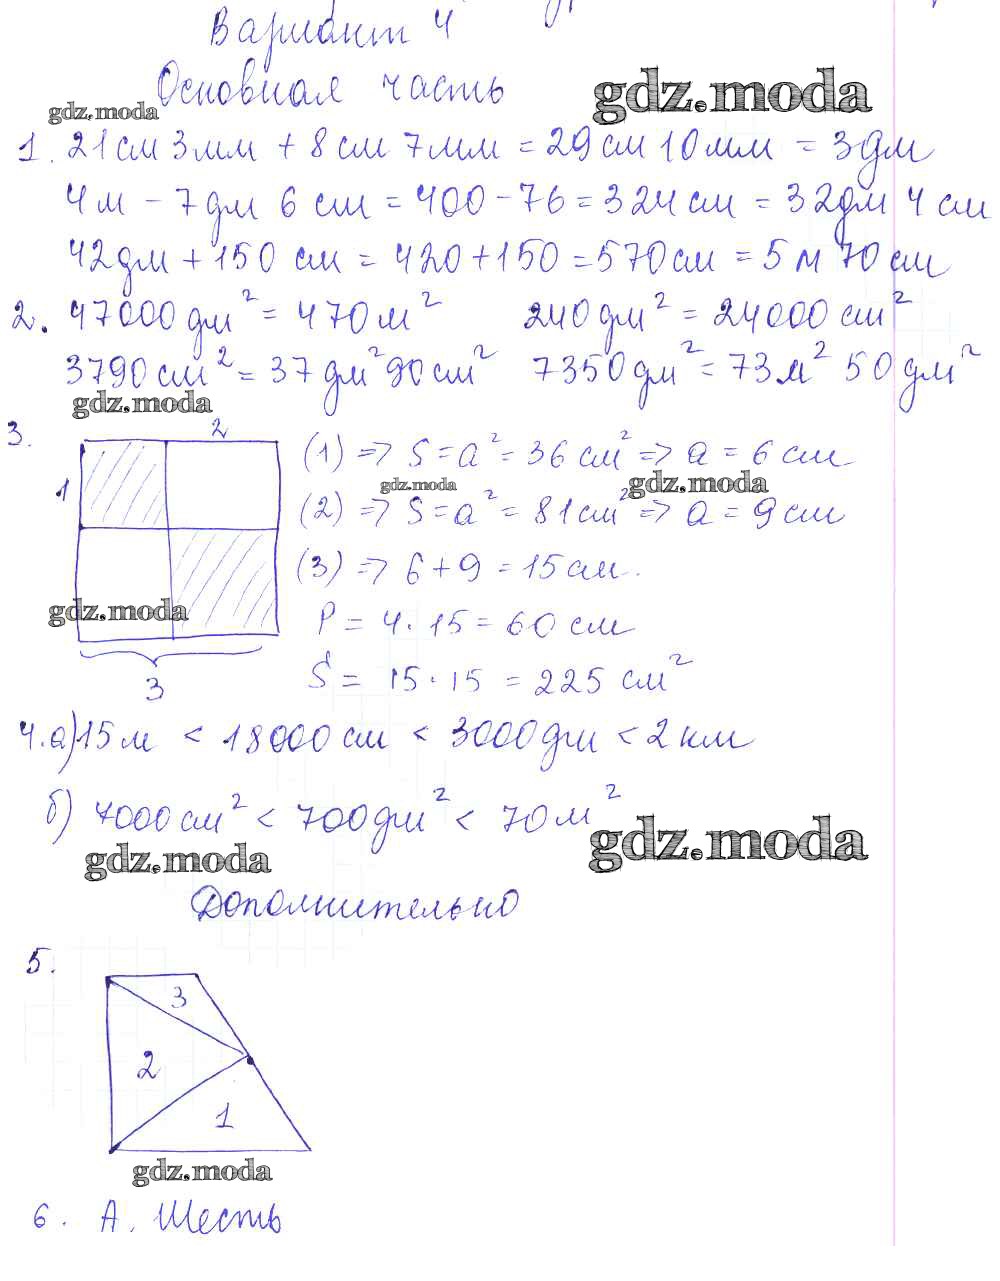 Вариант 4
Основная часть
gdz.moda
gdz.moda
1. 21см 3мм + 8см 7мм = 29см 10мм = 3дм
4м - 7дм 6 см = 400-76 = 324см = 32дм 4 см
42дм + 150 см = 420+150 = 570см = 5м 70см
2. 47000 дм² = 470м² 240дм² = 24000 см²
3790см² = 37дм² 90см² 7350дм² = 73м² 50дм²
gdz.moda
3. 2
1
(1) => S = a² = 36 см² => a = 6 см
gdz.moda
gdz.moda
(2) => S = a² = 81см² => a = 9см
(3) => 6 + 9 = 15см.
gdz.moda
P = 4·15 = 60 см
3
S = 15·15 = 225 см²
4. а) 15м < 18000см < 3000дм < 2км
б) 7000см² < 700дм² < 70м²
gdz.moda
gdz.moda
Дополнительно
5.
3
2
1
gdz.moda
6. А. Шесть